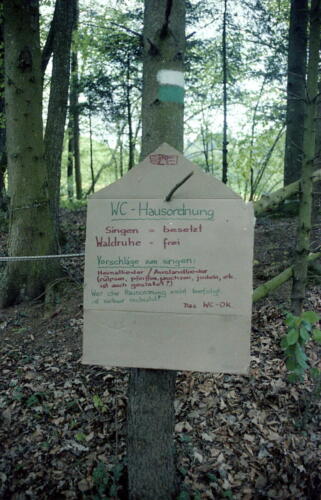 WC-Hausordnung
Singen = besetzt
Waldruhe - frei
Vorschläge zum singen:
Heimatlieder / Auslandlieder
(rülpsen, pfeiffen, jauchzen, jodeln, etc.
ist auch gestattet?)
Wer die Hausordnung nicht befolgt,
ist selber schuld!
Das WC-OK.